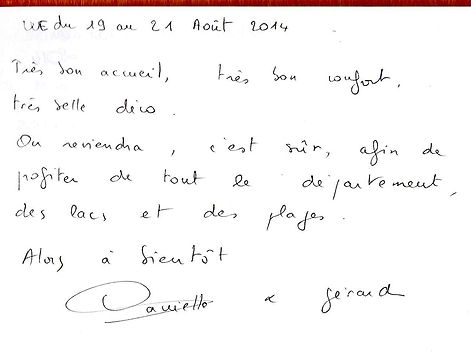 WE du 19 au 21 Août 2014
Très bon accueil, très bon confort,
très belle déco.
On reviendra, c'est sûr, afin de
profiter de tout le département,
des lacs et des plages.
Alors à bientôt
Danielle & Gérard